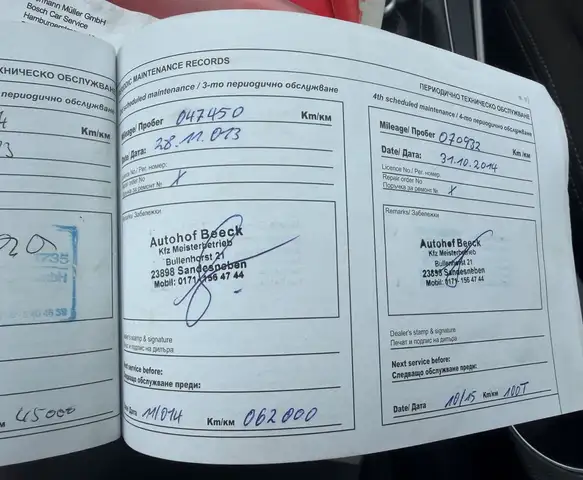 rmann Müller GmbH
Bosch Car Service
Hamburger
ХНИЧЕСКО ОБСЛУЖВАНЕ
периодично обслужване
Km/км
45000
ODIC MAINTENANCE RECORDS
scheduled maintenance / 3-то периодично обслужване
Mileage/ Пробег 047450 Km/км
Date/ Дата: 28.11.013
Licence No./ Рег. номер:
Repair order No
Поръчка за ремонт № X
Remarks/ Забележки
Autohof Beeck
Kfz Meisterbetrieb
Bullenhorst 21
23898 Sandesneben
Mobil: 0171 - 156 47 44
Dealer's stamp & signature
Печат и подпис на дилъра
Next service before:
Следващо обслужване преди:
Date/ Дата 11/014 Km/км 062000
ПЕРИОДИЧНО ТЕХНИЧЕСКО ОБСЛУЖВАНЕ
4th scheduled maintenance / 4-то периодично обслужване
Mileage/ Пробег 070932 Km /км
Date/ Дата: 31.10.2014
Licence No./ Рег. номер:
Repair order No
Поръчка за ремонт № X
Remarks/ Забележки
Autohof Beeck
Kfz Meisterbetrieb
Bullenhorst 21
23898 Sandesneben
Mobil: 0171 - 156 47 44
Dealer's stamp & signature
Печат и подпис на дилъра
Next service before:
Следващо обслужване преди:
Date/ Дата 10/15 Km/км 100T